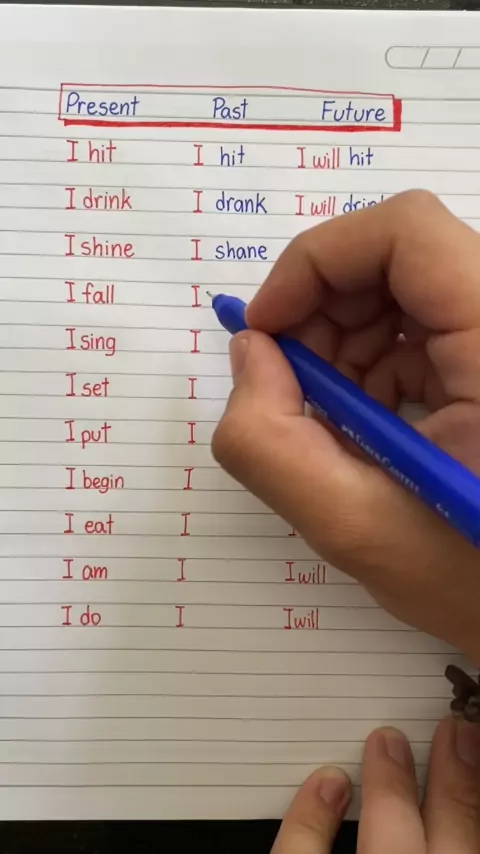 Present Past Future
I hit I hit I will hit
I drink I drank I will drink
I shine I shane
I fall I
I sing I
I set I
I put I
I begin I
I eat I
I am I I will
I do I I will